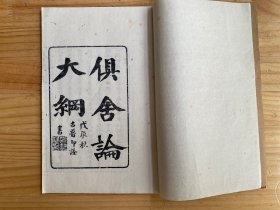 俱舍論
大綱
戊辰秋
書